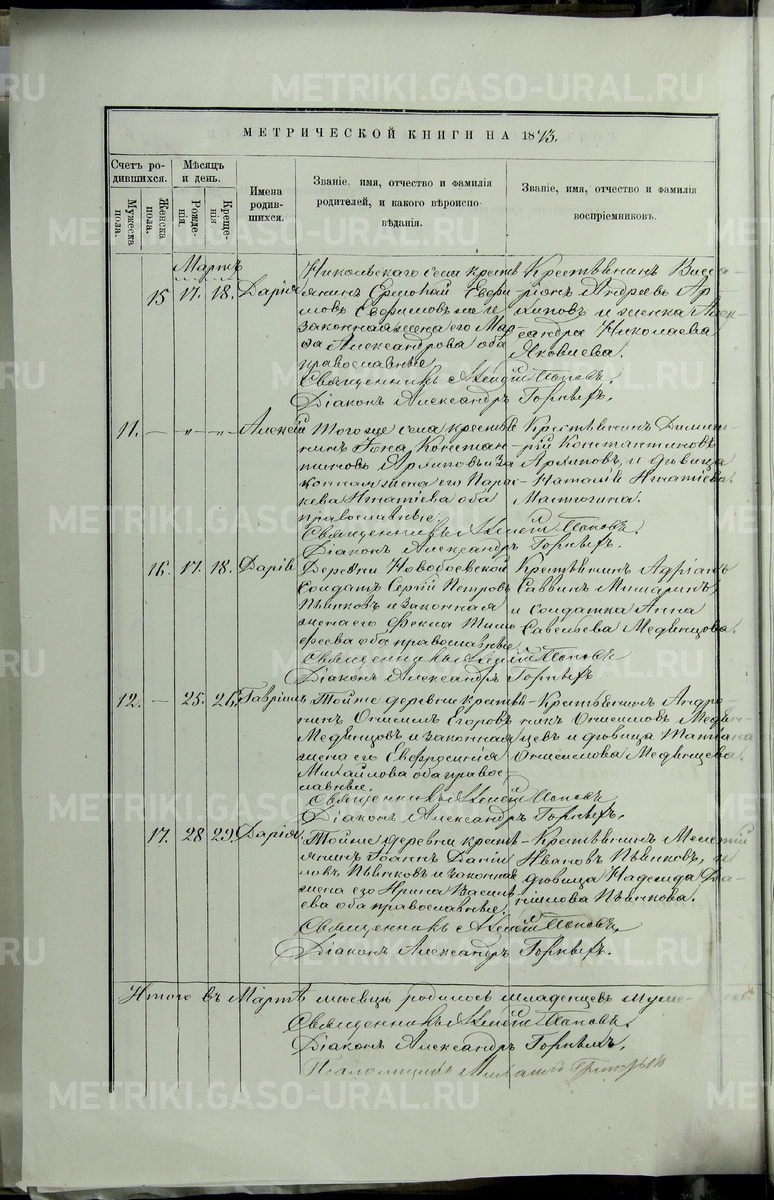 METRIKI.GASO-URAL.RU
МЕТРИЧЕСКОЙ КНИГИ НА 1873.
Счетъ родившихся.
Мѣсяцъ и день.
Имена родившихся.
Званіе, имя, отчество и фамилія родителей, и какого вѣроисповѣданія.
Званіе, имя, отчество и фамилія воспріемниковъ.
Мужеска пола.
Женска пола.
Рожденія.
Крещенія.
Мартъ
15 17. 18. Дарія
Никольскаго села крестьянинъ Ермолай Евфимовъ и законная жена его Александрова оба православные
Крестьянинъ Андреевъ Архиповъ и женка Александра Николаева Яковлева.
Священникъ Алексій Поповъ.
Діаконъ Александръ Горныхъ.
11. — „ — „ — Алексій
Того же села крестьянинъ Іона Константиновъ Архиповъ и законная жена его Параскева Игнатіева оба православные.
Крестьянинъ Димитрій Константиновъ Архиповъ, и дѣвица Наталія Игнатіева
Священникъ Алексій Поповъ.
Діаконъ Александръ Горныхъ.
16. 17. 18. Дарія
Деревни Новобоевской Солдатъ Сергій Петровъ Пьянковъ и законная жена его Фекла Тимофеева оба православные
Крестьянинъ Адріанъ Саввинъ и солдатка Анна Савельева Медвѣнцова.
Священникъ Алексій Поповъ
Діаконъ Александръ Горныхъ
12. — 25. 26. Гавріилъ
Тойже деревни крестьянинъ Онисимъ Егоровъ Медвѣнцовъ и законная жена его Евфросинія Михайлова оба православные.
Крестьянинъ Онисимовъ и дѣвица Татіана Онисимова Медвѣнцева.
Священникъ Алексій Поповъ
Діаконъ Александръ Горныхъ.
17. 28 29. Дарія
Тойже деревни крестьянинъ Іоаннъ Даніиловъ Пьянковъ и законная жена его Ирина Васильева оба православные.
Крестьянинъ Мелетій Ивановъ Пьянковъ, и дѣвица Надежда Даніилова Пьянкова.
Священникъ Алексій Поповъ.
Діаконъ Александръ Горныхъ.
Итого въ Мартѣ мѣсяцѣ родилось младенцевъ
Священникъ Алексій Поповъ.
Діаконъ Александръ Горныхъ.
Псаломщикъ Михаилъ